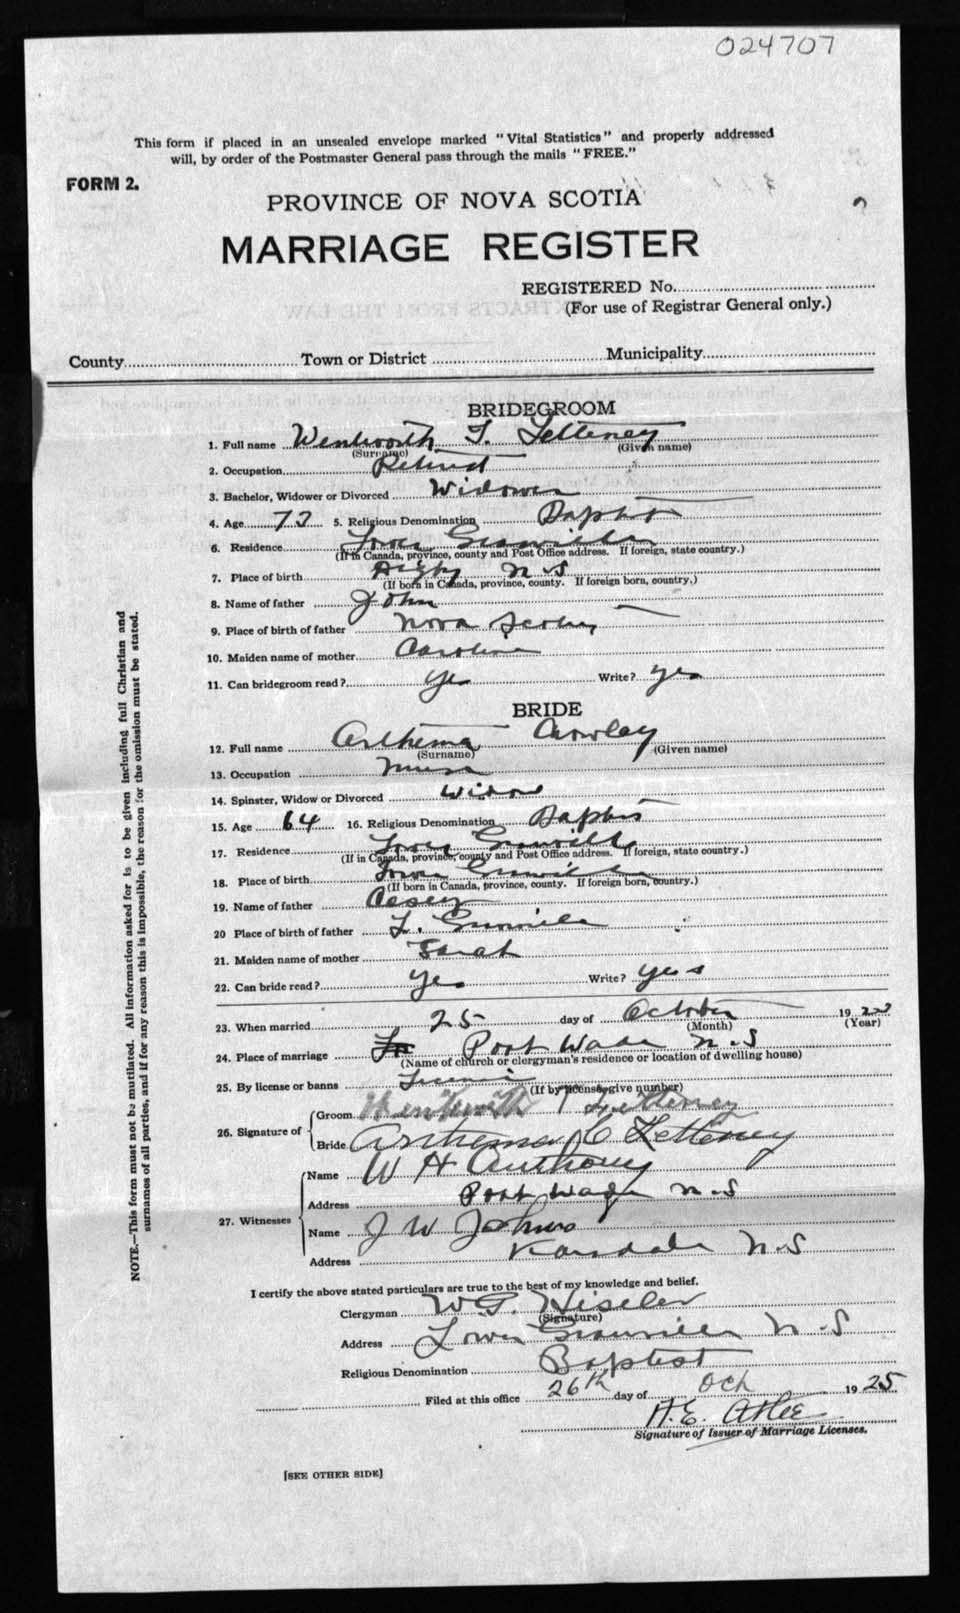 024707
This form if placed in an unsealed envelope marked "Vital Statistics" and properly addressed
will, by order of the Postmaster General pass through the mails "FREE."
FORM 2.
PROVINCE OF NOVA SCOTIA
MARRIAGE REGISTER
REGISTERED No.
(For use of Registrar General only.)
County Town or District Municipality
BRIDEGROOM
1. Full name Wentworth T. Letteney
(Surname) (Given name)
2. Occupation Retired
3. Bachelor, Widower or Divorced Widower
4. Age 73 5. Religious Denomination Baptist
6. Residence Lower Granville
(If in Canada, province, county and Post Office address. If foreign, state country.)
7. Place of birth Digby N-S
(If born in Canada, province, county. If foreign born, country.)
8. Name of father John
9. Place of birth of father Nova Scotia
10. Maiden name of mother Caroline
11. Can bridegroom read? yes Write? yes
BRIDE
12. Full name Arthema Crowley
(Surname) (Given name)
13. Occupation Nurse
14. Spinster, Widow or Divorced Widow
15. Age 64 16. Religious Denomination Baptist
17. Residence Lower Granville
(If in Canada, province, county and Post Office address. If foreign, state country.)
18. Place of birth Lower Granville
(If born in Canada, province, county. If foreign born, country.)
19. Name of father
20 Place of birth of father L. Granville
21. Maiden name of mother Sarah
22. Can bride read? yes Write? yes
23. When married 25 day of October 19
(Month) (Year)
24. Place of marriage Port Wade N-S
(Name of church or clergyman's residence or location of dwelling house)
25. By license or banns License
(If by license, give number)
26. Signature of Groom Wentworth T Letteney
Bride Arthema C Letteney
27. Witnesses Name W H Anthony
Address Port Wade N-S
Name J W Johns
Address Karsdale N-S
I certify the above stated particulars are true to the best of my knowledge and belief.
Clergyman W. G. Wiseler
(Signature)
Address Lower Granville N-S
Religious Denomination Baptist
Filed at this office 26th day of Oct 1925
H. E. Atlee
Signature of Issuer of Marriage Licenses.
[SEE OTHER SIDE]
NOTE.—This form must not be mutilated. All information asked for is to be given including full Christian and
surnames of all parties, and if for any reason this is impossible, the reason for the omission must be stated.